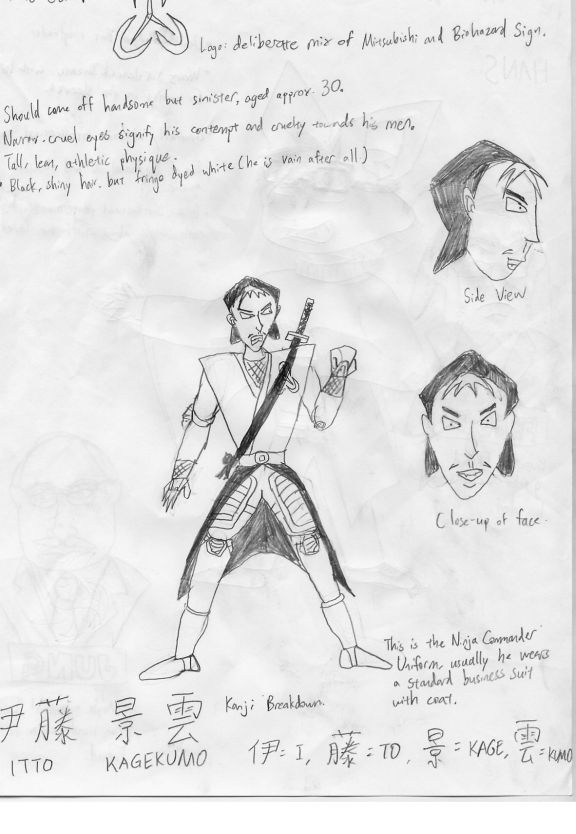 Logo: deliberate mix of Mitsubishi and Biohazard Sign.
Should come off handsome but sinister, aged approx. 30.
Narrow cruel eyes signify his contempt and cruelty towards his men.
Tall, lean, athletic physique.
• Black, shiny hair. but fringe dyed white (he is vain after all)
HANS
Side View
Close-up of face.
This is the Ninja Commander
Uniform, usually he wears
a standard business suit
with coat.
JUNG
伊藤 景雲
Kanji Breakdown.
ITTO KAGEKUMO
伊=I, 藤=TO, 景=KAGE, 雲=KUMO